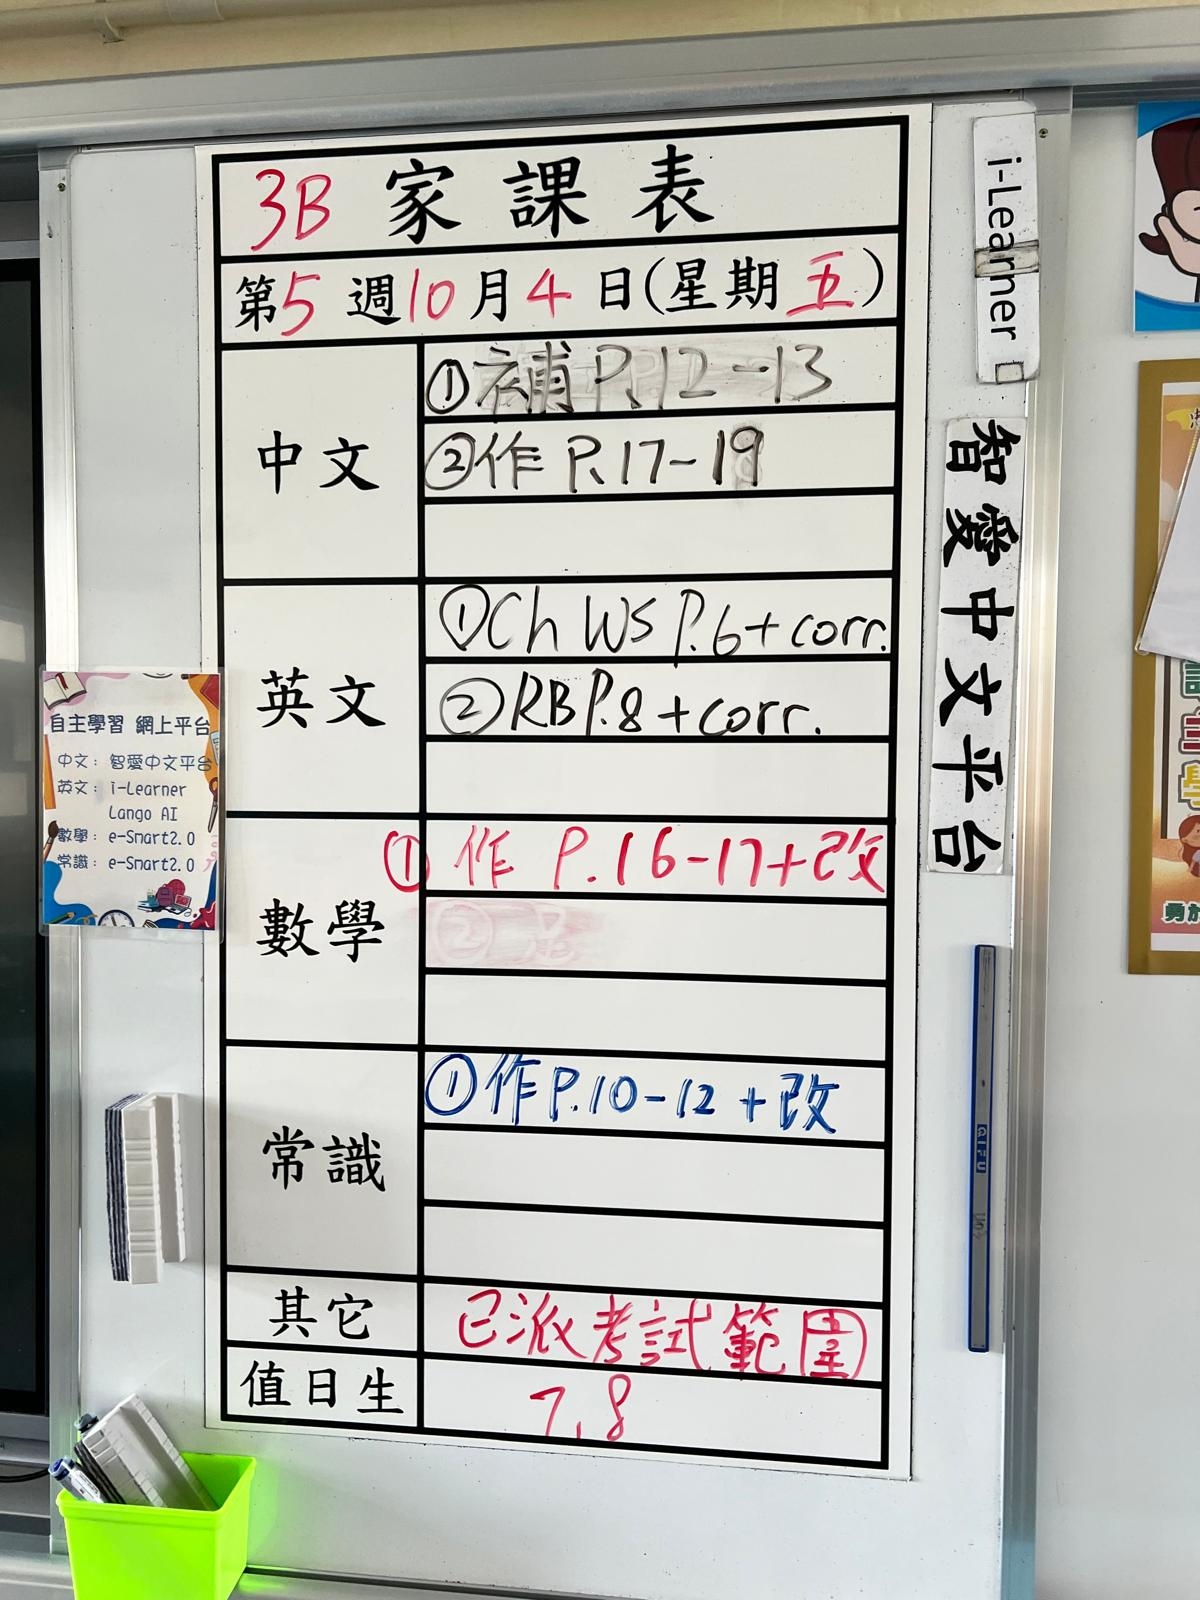 3B 家課表
第5週10月4日(星期五)
中文
①補 P.12-13
②作 P.17-19
英文
①Ch WS P.6+corr.
②RB P.8+corr.
數學
① 作 P.16-17+改
②
常識
①作P.10-12+改
其它
已派考試範圍
值日生
7,8
i-Learner
智愛中文平台
自主學習 網上平台
中文: 智愛中文平台
英文: i-Learner
Lango AI
數學: e-Smart2.0
常識: e-Smart2.0